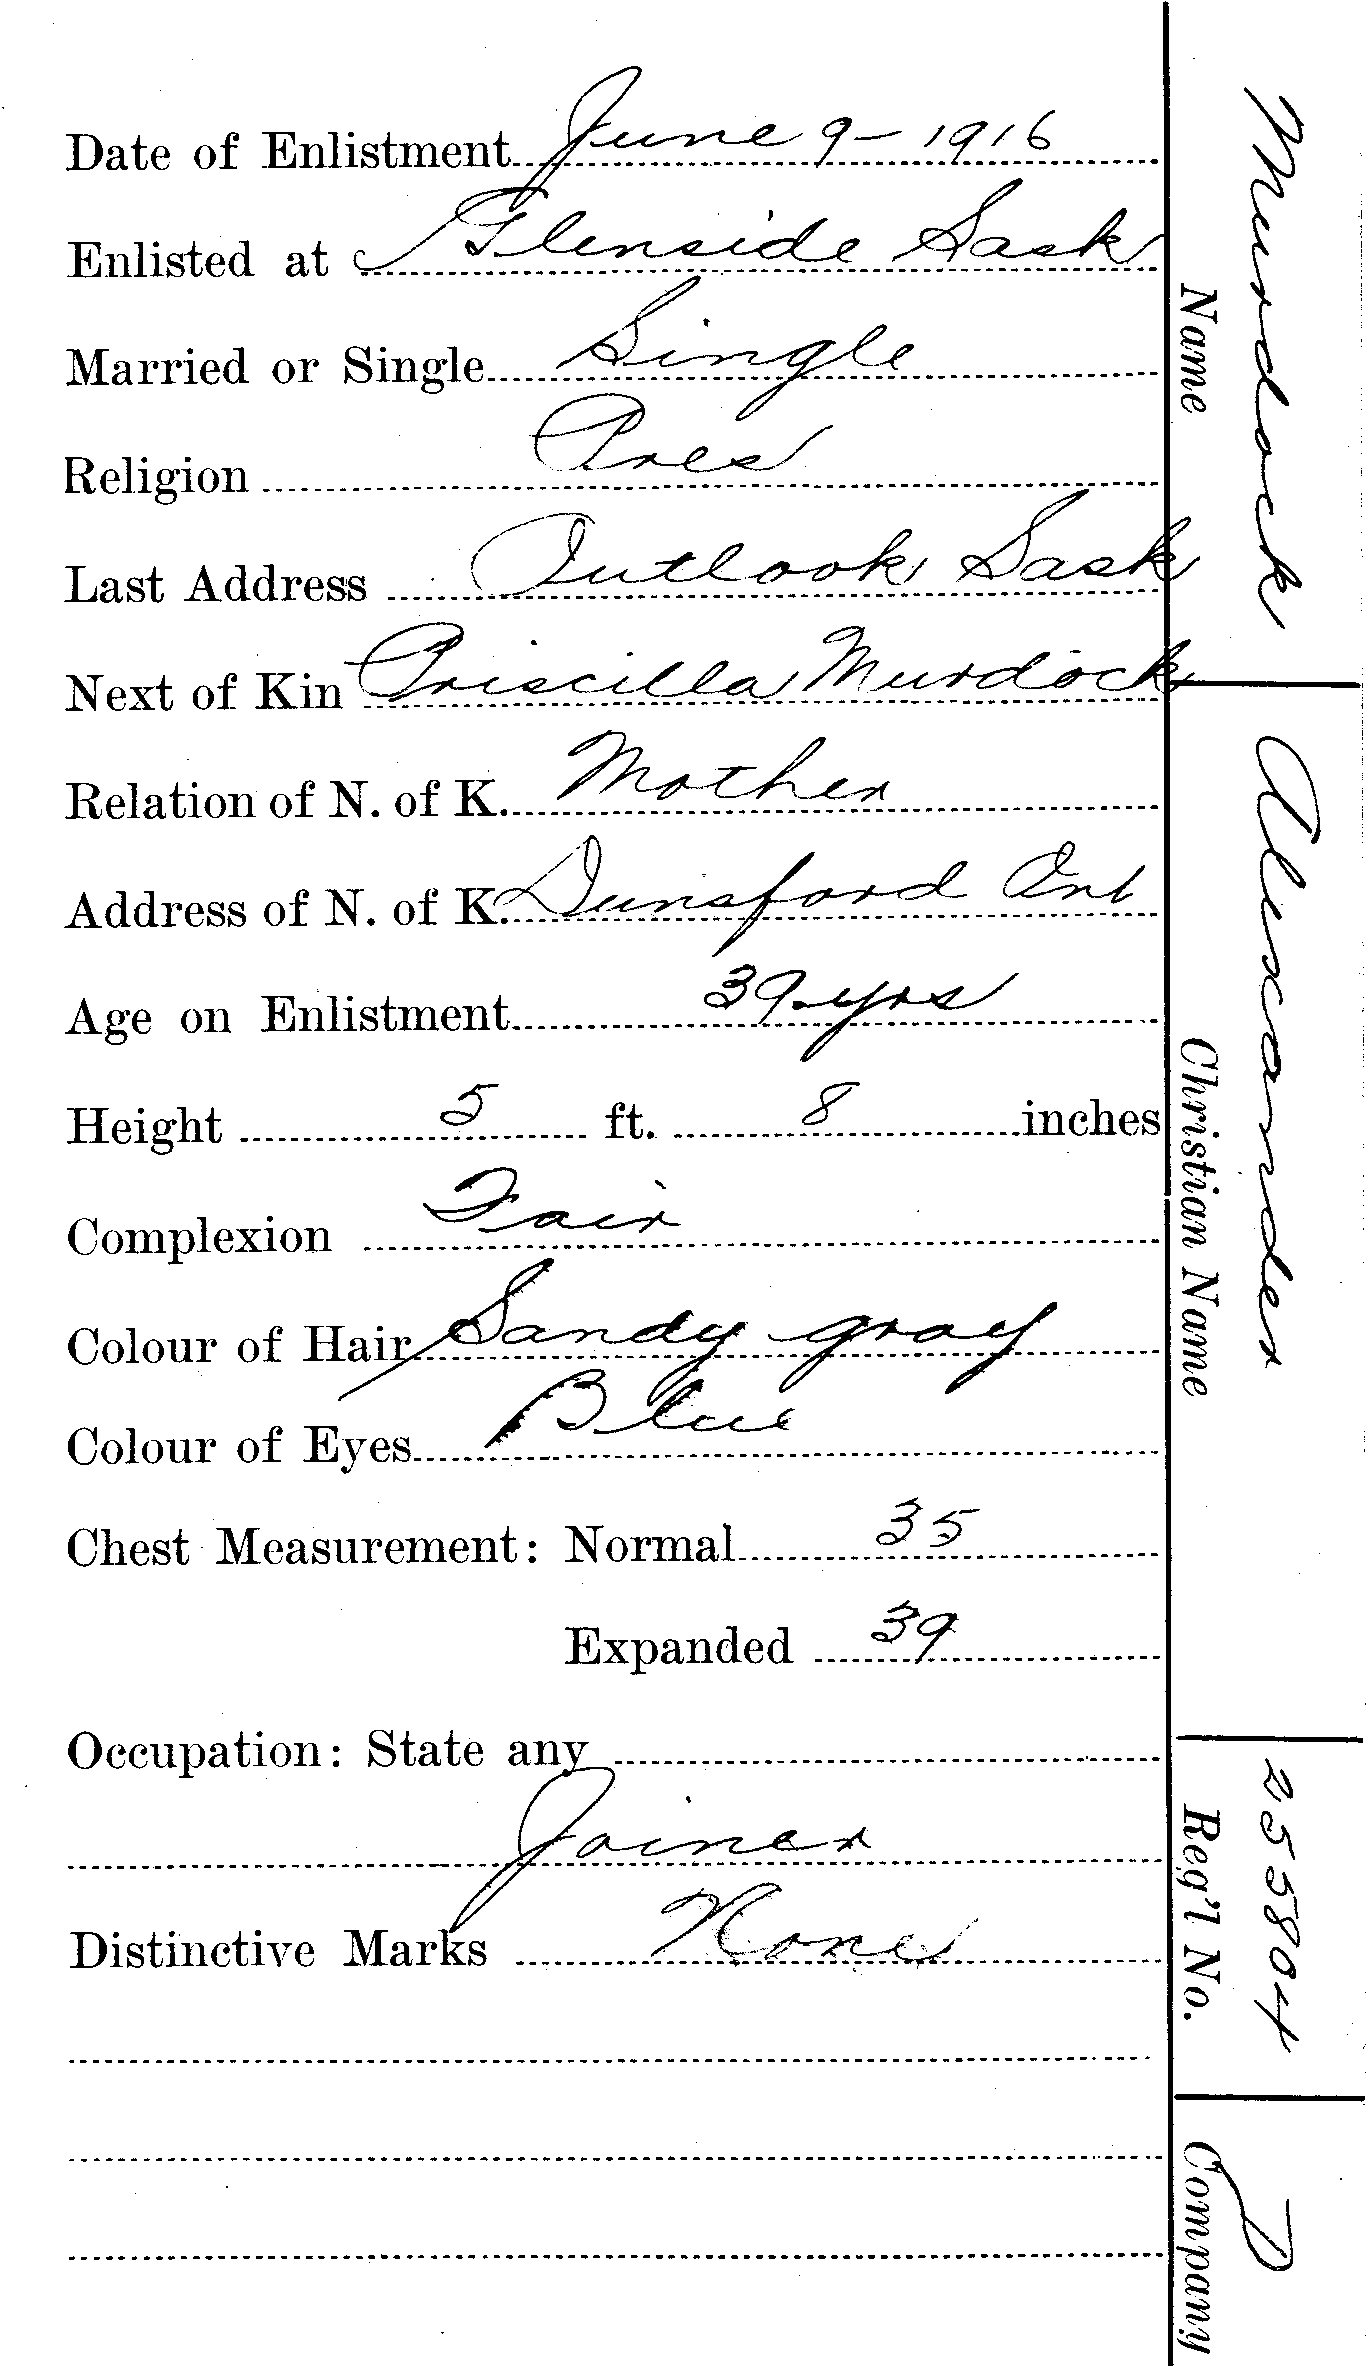 Date of Enlistment June 9 - 1916
Enlisted at Glenside Sask
Married or Single Single
Religion Pres
Last Address Outlook Sask
Next of Kin Priscilla Murdock
Relation of N. of K. Mother
Address of N. of K. Dunsford Ont
Age on Enlistment 39 yrs
Height 5 ft. 8 inches
Complexion Fair
Colour of Hair Sandy gray
Colour of Eyes Blue
Chest Measurement: Normal 35
Expanded 39
Occupation: State any
Joiner
Distinctive Marks None
Murdock Alexander 255804 D
Name Christian Name Reg'l No. Company